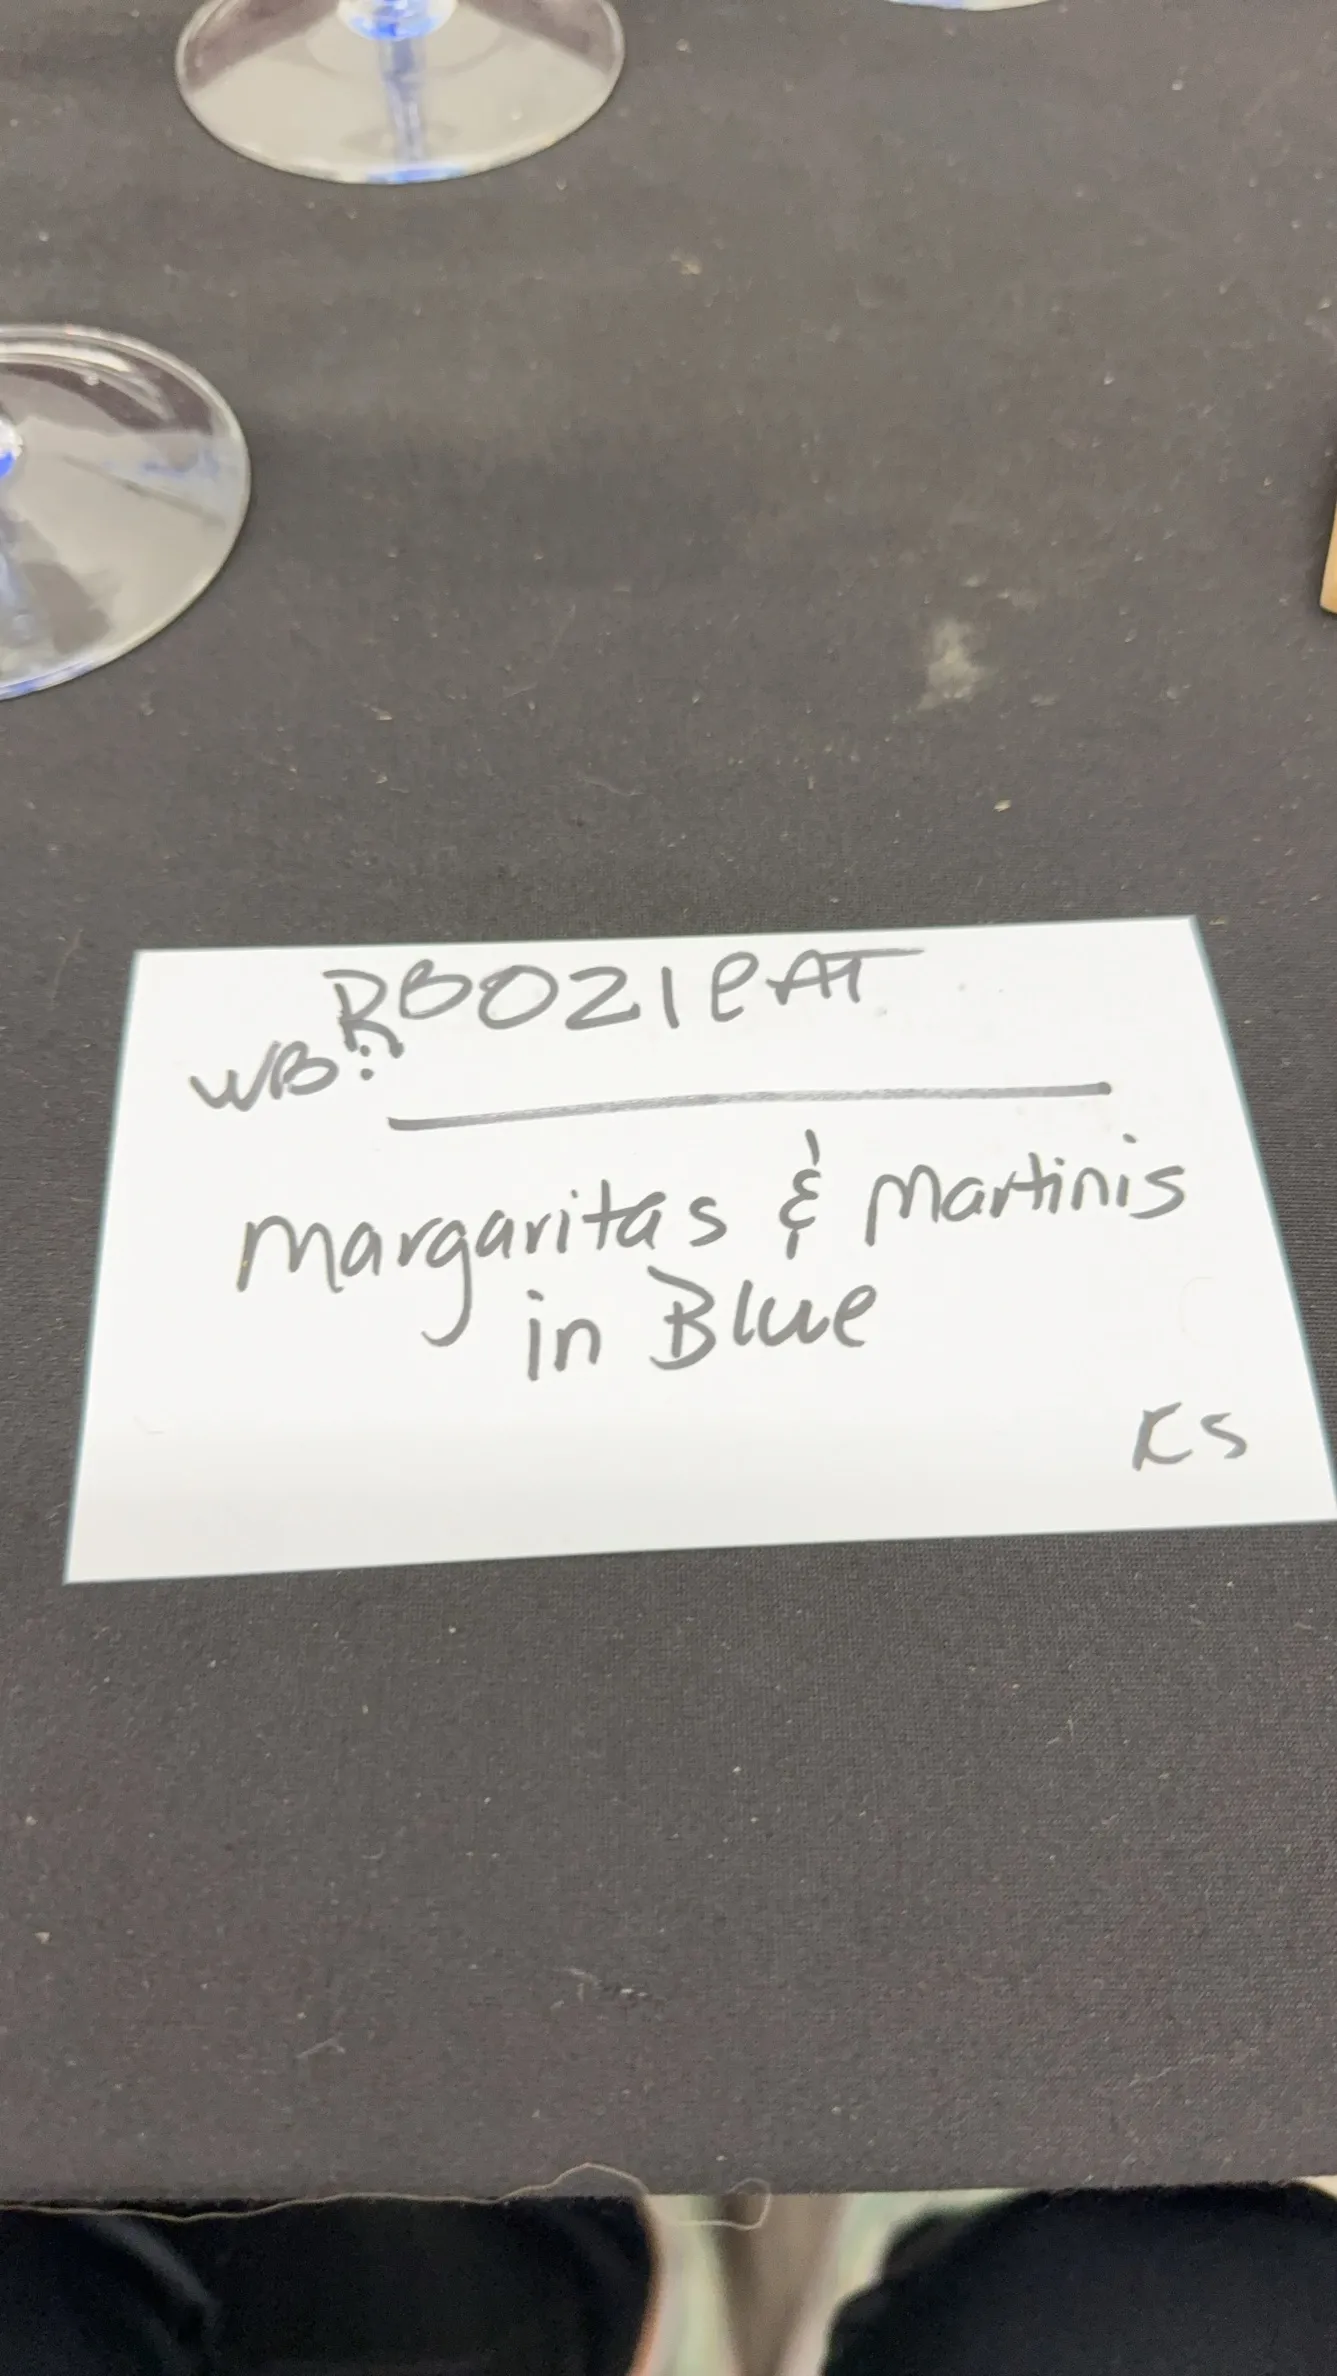 RBOZIEAT
WB:
Margaritas & Martinis
in Blue
KS